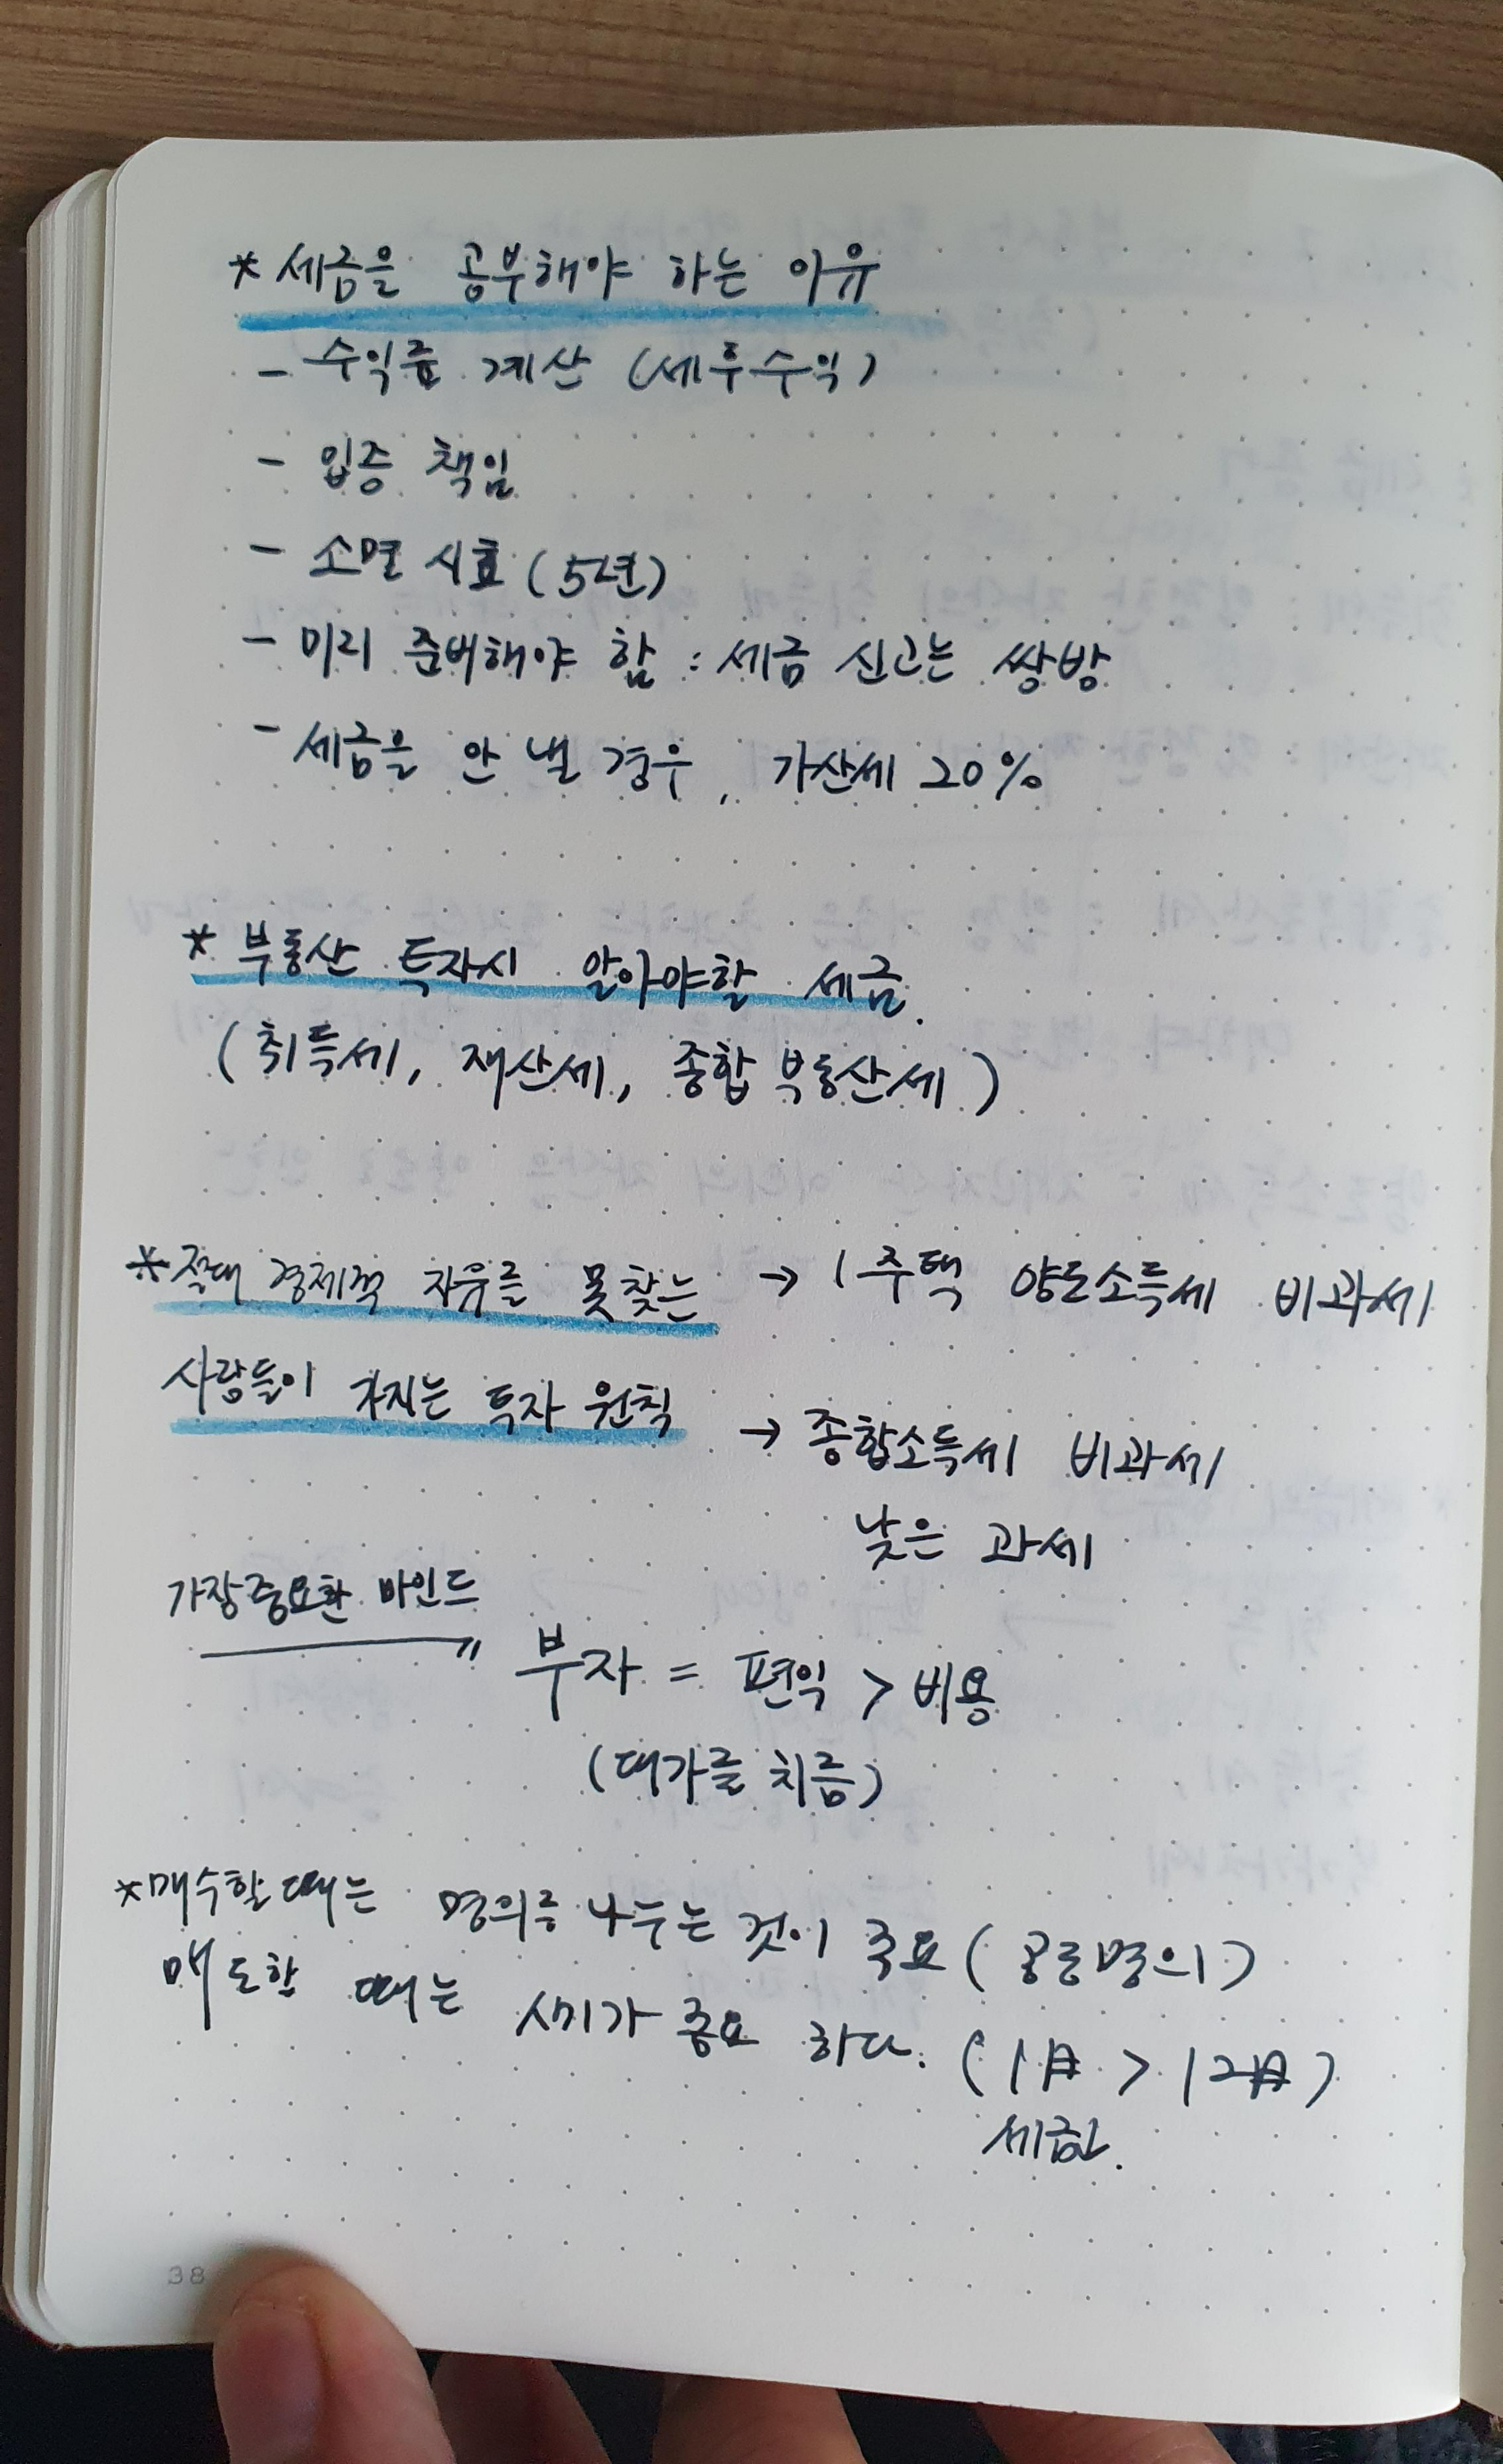 * 세금을 공부해야 하는 이유
- 수익률 계산 (세후수익)
- 입증 책임
- 소멸 시효 (5년)
- 미리 준비해야 함 : 세금 신고는 쌍방
- 세금을 안 낼 경우, 가산세 20%
* 부동산 투자시 알아야할 세금.
(취득세, 재산세, 종합부동산세)
* 절대 경제적 자유를 못찾는 → 1주택 양도소득세 비과세
사람들이 가지는 투자 원칙 → 종합소득세 비과세
낮은 과세
가장중요한 마인드
부자 = 편익 > 비용
(대가를 치름)
* 매수할 때는 명의를 나누는 것이 중요 (공동명의)
매도할 때는 시기가 중요 하다. (1채 > 12채)
세금.
38